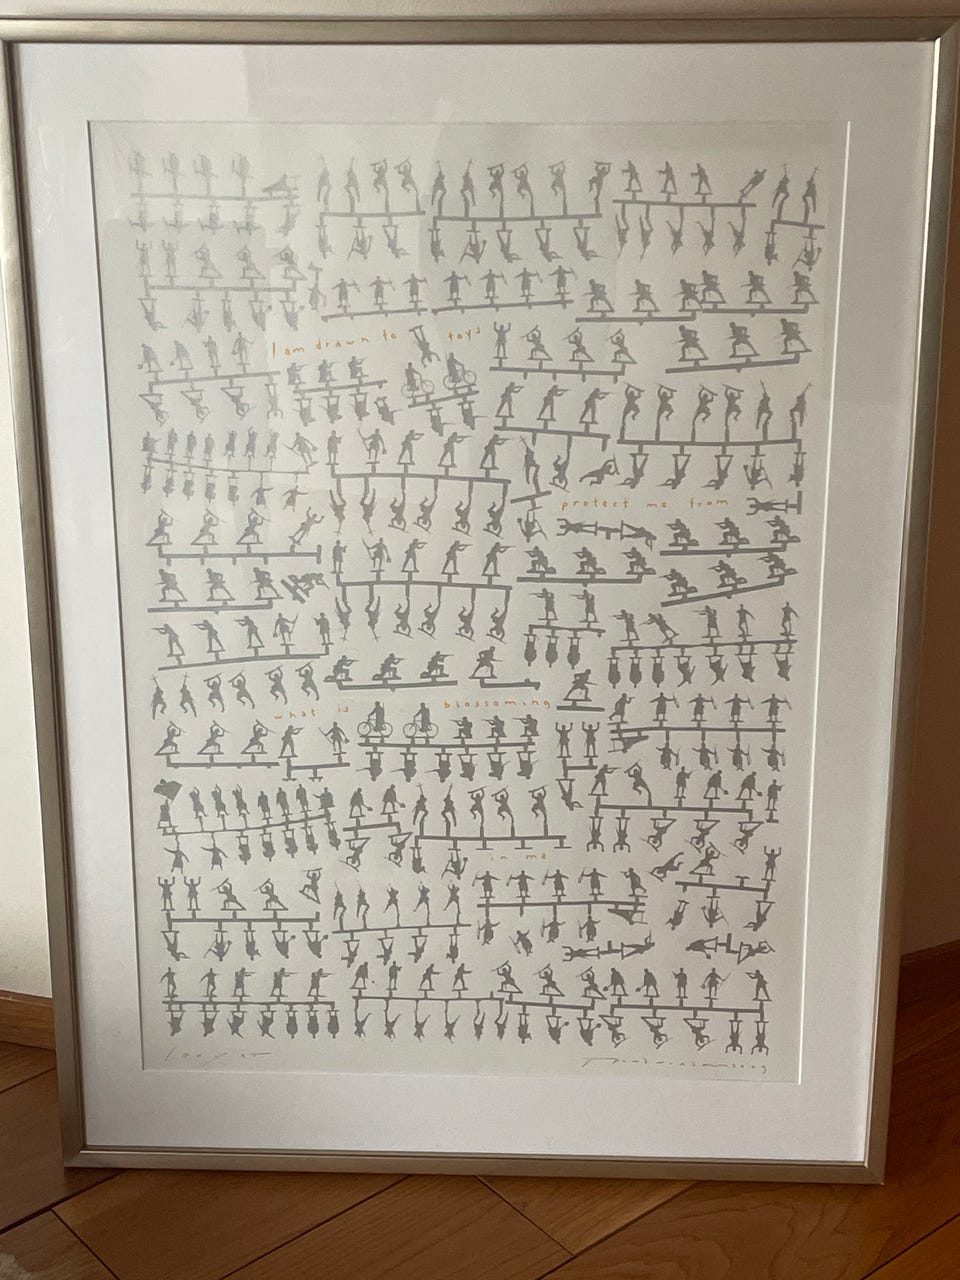 I am drawn to toys
protect me from
what is blossoming
in me